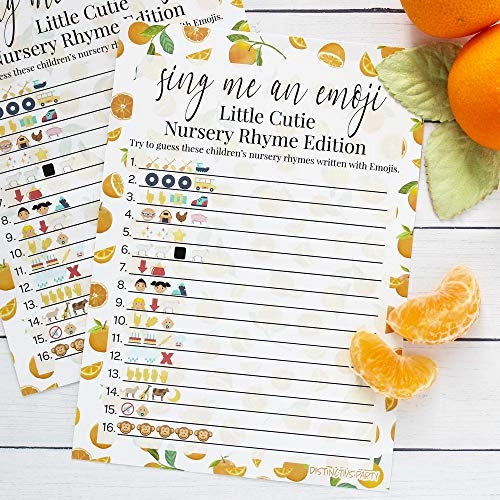 sing me an emoji
Little Cutie
Nursery Rhyme Edition
Try to guess these children's nursery rhymes written with Emojis.
1.
2.
3.
4.
5.
6.
7.
8.
9.
10.
11.
12.
13.
14.
15.
16.
DISTINCTIVS PARTY
sing me an
Little Cutie
Nursery Rhyme
guess these children's nursery rhymes
8.
9.
10.
11.
12.
13.
14.
15.
16.